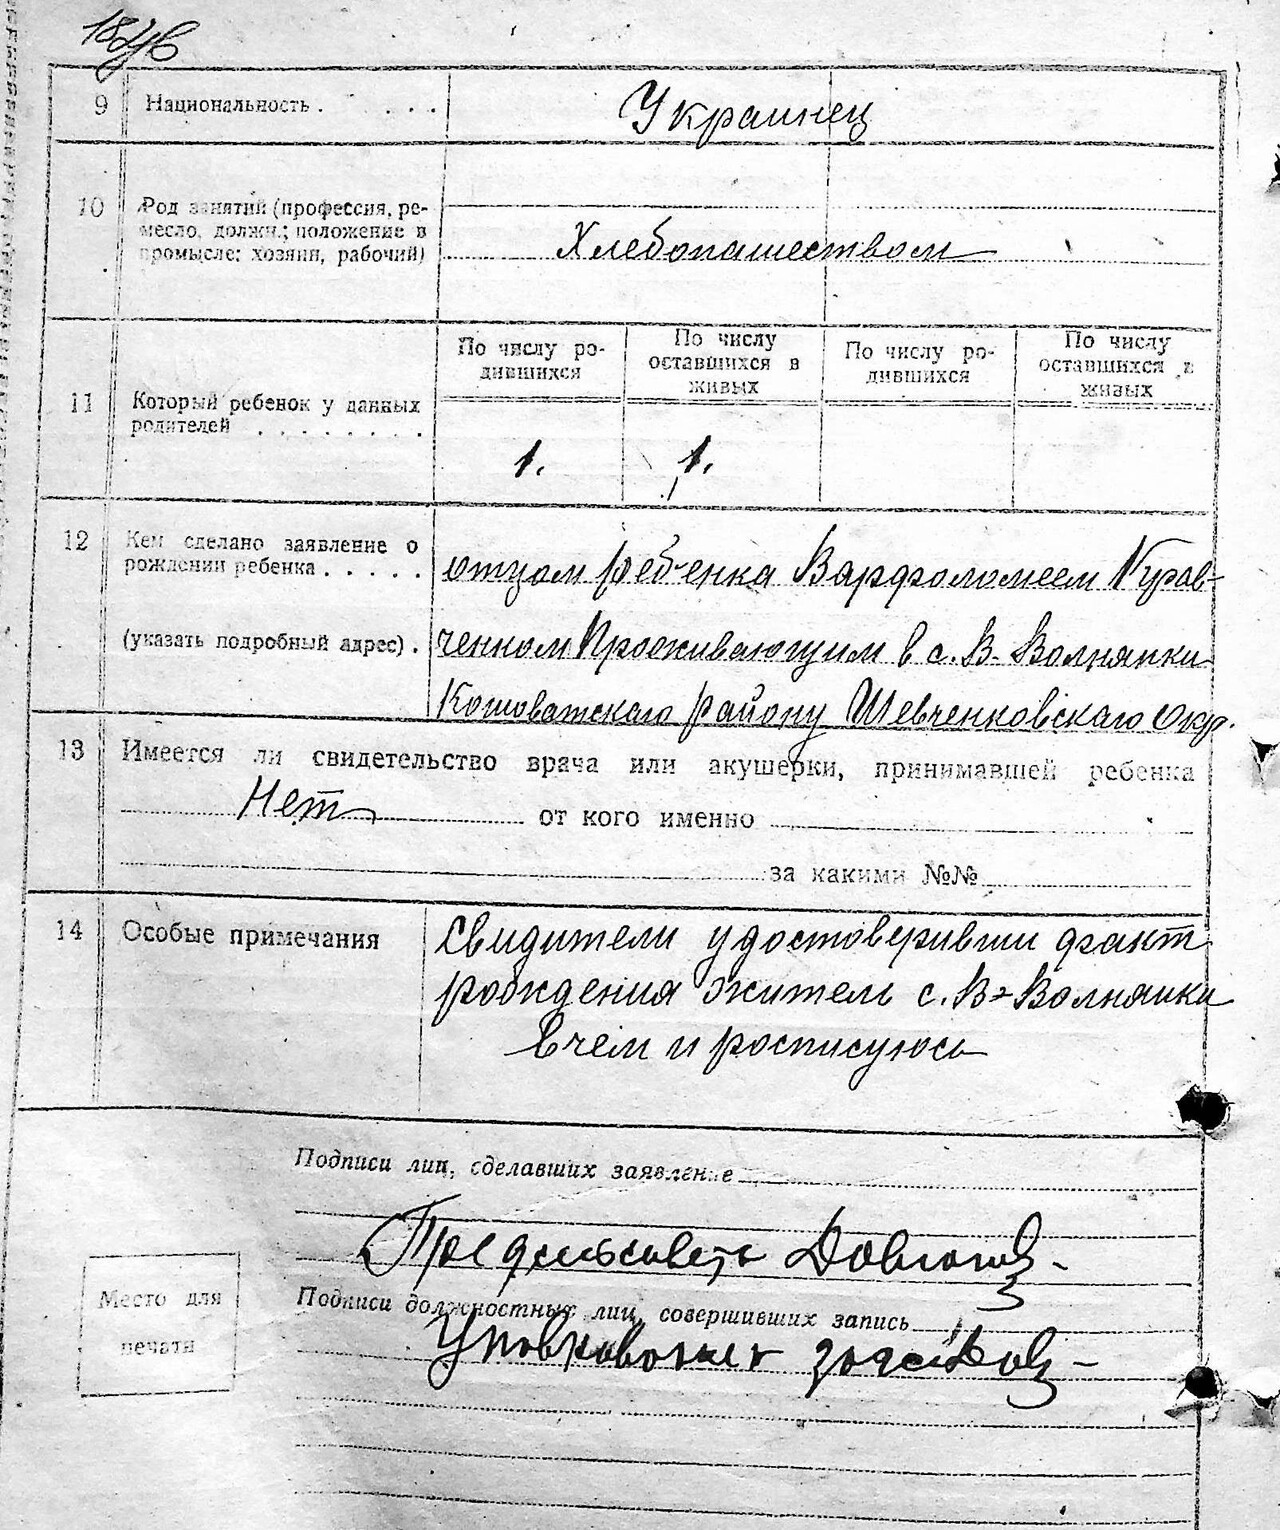 9 Национальность . . . . Украинец
10 Род занятий (профессия, ре-
месло, должн.; положение в
промысле: хозяин, рабочий)
Хлебопашеством
11 Который ребенок у данных
родителей . . . . . . . .
По числу ро-
дившихся
По числу
оставшихся в
живых
По числу ро-
дившихся
По числу
оставшихся в
живых
1. 1.
12 Кем сделано заявление о
рождении ребенка . . . . .
(указать подробный адрес) .
отцом ребенка Варфоломеем Крав-
ченком Проживающим в с. В-Волнянки
Кошоватскаго району Шевченковскаго Окр.
13 Имеется ли свидетельство врача или акушерки, принимавшей ребенка
Нет от кого именно
за какими №№
14 Особые примечания
Свидители удостоверивши факт
рождения житель с. В-Волнянки
вчем и росписуюсь
Подписи лиц, сделавших заявление
Место для
печати
Подписи должностных лиц, совершивших запись